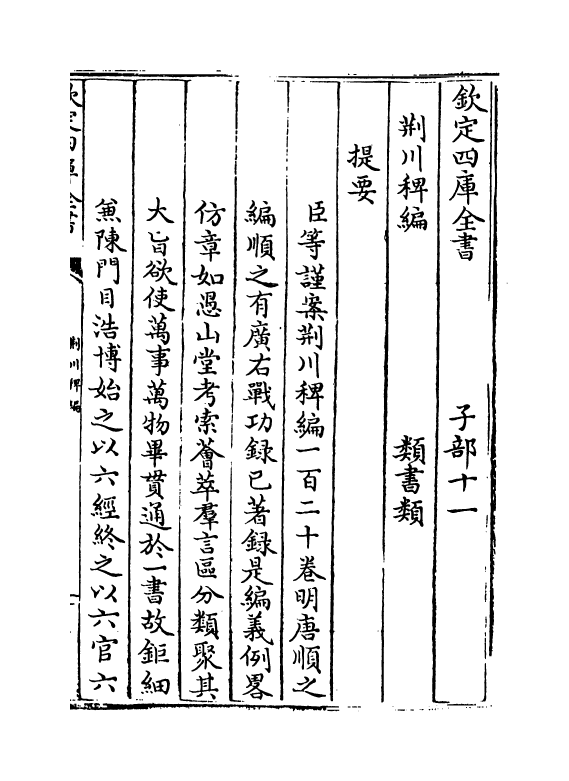 欽定四庫全書　子部十一
荆川稗編　類書類
提要
臣等謹案荆川稗編一百二十卷明唐順之
編順之有廣右戰功録已著録是編義例畧
仿章如愚山堂考索薈萃羣言區分類聚其
大旨欲使萬事萬物畢貫通於一書故鉅細
兼陳門目浩博始之以六經終之以六官六
欽定四庫全書　荆川稗編